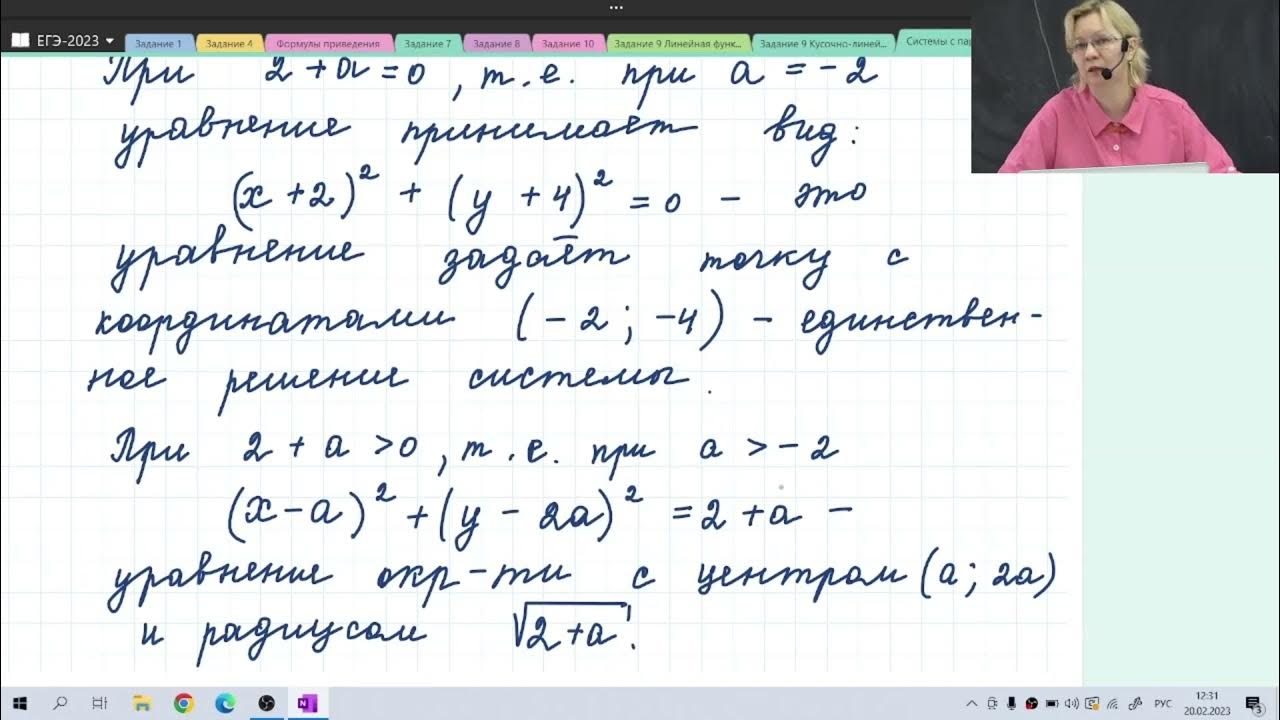 ЕГЭ-2023
Задание 1
Задание 4
Формулы приведения
Задание 7
Задание 8
Задание 10
Задание 9 Линейная функ...
Задание 9 Кусочно-линей...
Системы с па
При 2+a=0, т.е. при a=-2
уравнение принимает вид:
(x+2)² + (y+4)² = 0 - это
уравнение задаёт точку с
координатами (-2; -4) - единствен-
ное решение системы.
При 2+a>0, т.е. при a>-2
(x-a)² + (y-2a)² = 2+a -
уравнение окр-ти с центром (a; 2a)
и радиусом √2+a.
РУС
12:31
20.02.2023
3